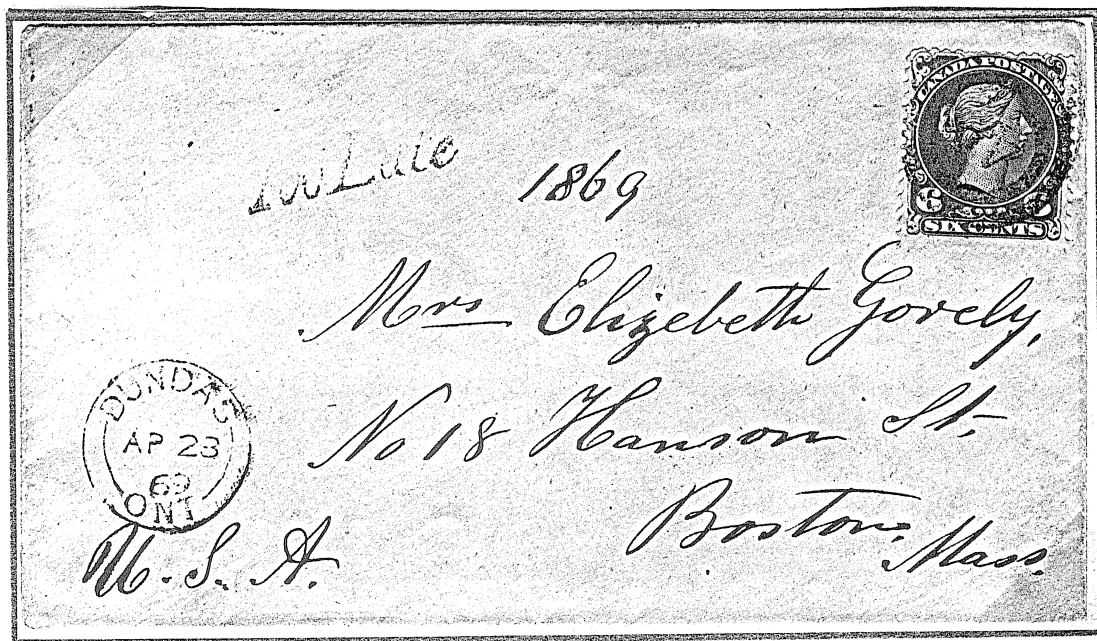 CANADA POSTAGE
6
SIX CENTS
Too Late
1869
Mrs Elizebeth Gorely,
No 18 Hanson St,
Boston,
Mass.
U. S. A.
DUNDAS
AP 23
69
ONT